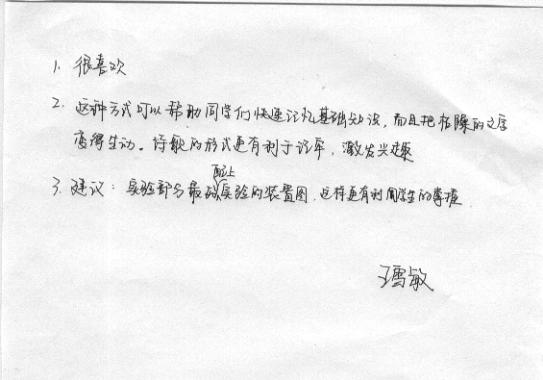 1. 很喜欢
2. 这种方式可以帮助同学们快速记忆基础知识,而且把枯燥的文字
变得生动。诗歌的形式更有利于记牢,激发兴趣
配上
3. 建议:实验部分最好实验的装置图,这样更有利同学生的掌握.
王雪敏